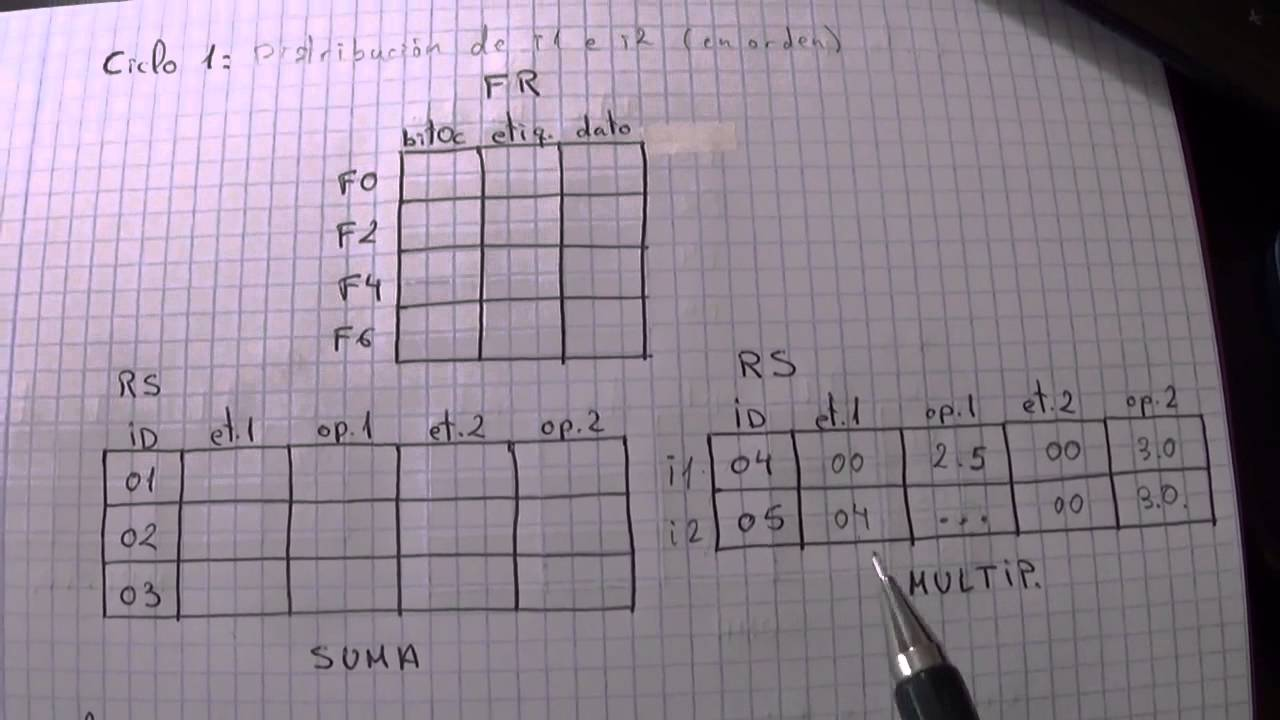 Ciclo 1: Distribución de i1 e i2 (en orden)
FR
bitOc etiq. dato
F0
F2
F4
F6
RS
iD et.1 op.1 et.2 op.2
01
02
03
SUMA
RS
iD et.1 op.1 et.2 op.2
i1 04 00 2.5 00 3.0
i2 05 04 ... 00 3.0.
MULTIP.